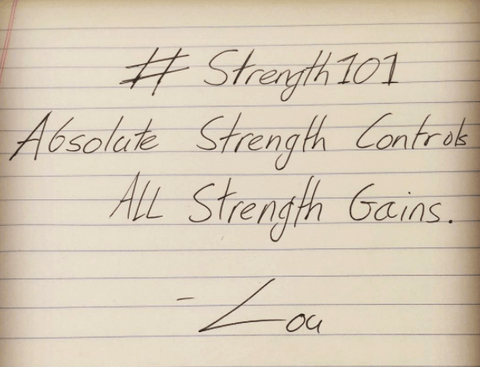 # Strength101
Absolute Strength Controls
ALL Strength Gains.
- Lou